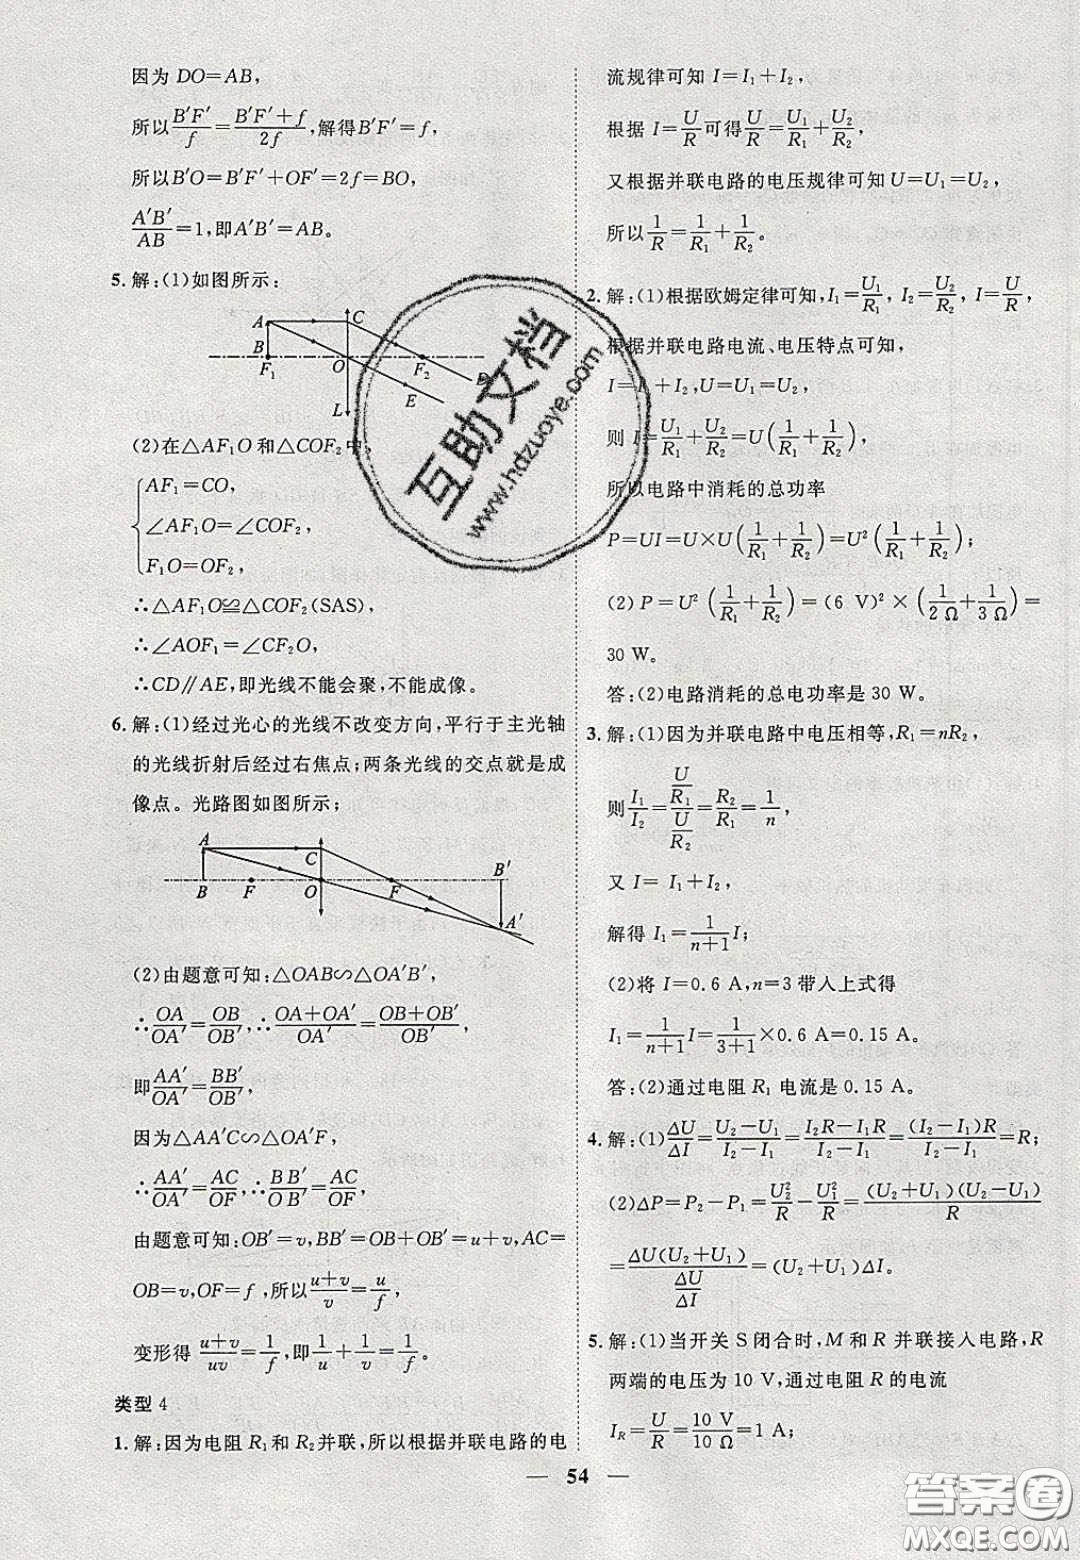 因为 DO=AB,
所以 B′F′/f = (B′F′+f)/2f, 解得B′F′=f,
所以B′O=B′F′+OF′=2f=BO,
A′B′/AB=1,即A′B′=AB。
5. 解:(1)如图所示:
A C
B
F₁ O F₂ D
E
L
(2)在△AF₁O 和△COF₂中,
AF₁=CO,
∠AF₁O=∠COF₂,
F₁O=OF₂,
∴△AF₁O≌△COF₂(SAS)
∴∠AOF₁=∠CF₂O,
∴CD∥AE,即光线不能会聚,不能成像。
6. 解:(1)经过光心的光线不改变方向,平行于主光轴
的光线折射后经过右焦点;两条光线的交点就是成
像点。光路图如图所示;
A C B′
B F O F
A′
(2)由题意可知:△OAB∽△OA′B′,
∴OA/OA′=OB/OB′,∴(OA+OA′)/OA′=(OB+OB′)/OB′,
即AA′/OA′=BB′/OB′,
因为△AA′C∽△OA′F,
∴AA′/OA′=AC/OF,∴BB′/OB′=AC/OF,
由题意可知:OB′=v,BB′=OB+OB′=u+v,AC=
OB=v,OF=f,所以(u+v)/v=u/f,
变形得 (u+v)/uv=1/f,即1/u+1/v=1/f。
类型 4
1. 解:因为电阻 R₁和 R₂并联,所以根据并联电路的电
流规律可知 I=I₁+I₂,
根据 I=U/R可得U/R=U₁/R₁+U₂/R₂,
又根据并联电路的电压规律可知 U=U₁=U₂,
所以 1/R=1/R₁+1/R₂。
2. 解:(1)根据欧姆定律可知,I₁=U₁/R₁, I₂=U₂/R₂, I=U/R,
根据并联电路电流、电压特点可知,
I=I₁+I₂,U=U₁=U₂,
则 I=U₁/R₁+U₂/R₂=U(1/R₁+1/R₂),
所以电路中消耗的总功率
P=UI=U×U(1/R₁+1/R₂)=U²(1/R₁+1/R₂);
(2) P=U²(1/R₁+1/R₂)=(6 V)²×(1/2 Ω+1/3 Ω)=
30 W。
答:(2)电路消耗的总电功率是 30 W。
3. 解:(1)因为并联电路中电压相等,R₁=nR₂,
则 I₁/I₂=(U/R₁)/(U/R₂)=R₂/R₁=1/n,
又 I= I₁+I₂,
解得 I₁=1/(n+1) I;
(2)将 I=0.6 A,n=3 带入上式得
I₁=1/(n+1) I=1/(3+1)×0.6 A=0.15 A。
答:(2)通过电阻 R₁ 电流是 0.15 A。
4. 解:(1)ΔU/ΔI=(U₂-U₁)/(I₂-I₁)=(I₂R-I₁R)/(I₂-I₁)=(I₂-I₁)R/(I₂-I₁)=R;
(2)ΔP=P₂-P₁=U₂²/R-U₁²/R=(U₂+U₁)(U₂-U₁)/R
=ΔU(U₂+U₁)/(ΔU/ΔI)=(U₂+U₁)ΔI。
5. 解:(1)当开关 S闭合时,M 和 R 并联接入电路,R
两端的电压为 10 V,通过电阻 R 的电流
I_R=U/R=10 V/10 Ω=1 A;
54
互助文档
www.hdzuoye.com
答案圈
MXQE.COM